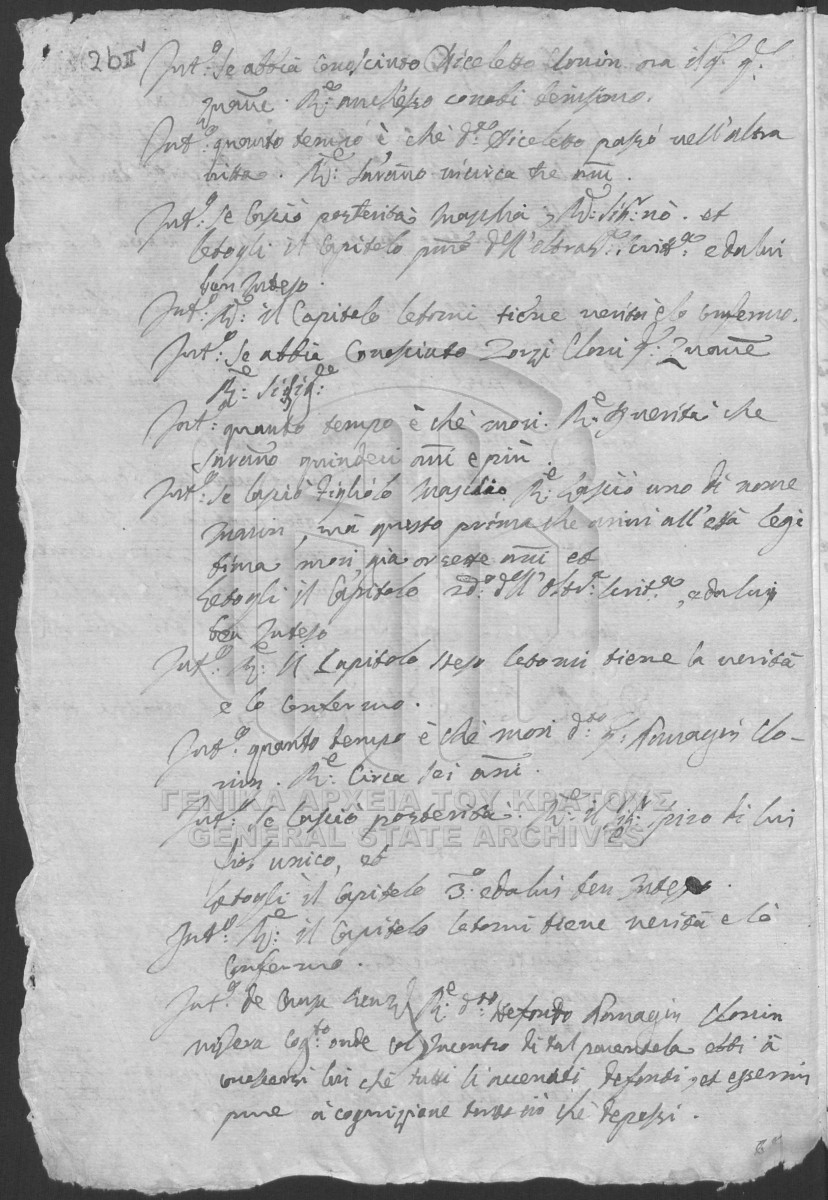 2bIIv
Int.o: Se abbia conosciuto Niceletto Clonin ora il q.
Zuanne. R.e anch'esso conobi benissimo.
Int.o quanto tempo è chè d.to Niceletto passò nell'altra
vitta. R.e: Saranno incirca tre anni.
Int.o: Se lasciò posterità maschia; R.e: Sig.r nò. et
letogli il Capitolo primo dell'oltras.ta scritt.a e da lui
ben Inteso.
Int.o R.e: il Capitolo letomi tiene verità è lo confermo.
Int.o: Se abbia Conosciuto Zorzi Cloni q.m Zuanne
R.e: Si Sig.re
Int.o: quanto tempo è chè morì. R.e è verità che
saranno quindeci anni e più.
Int.o: Se lasciò figliolo maschio R.e: Lasciò uno di nome
Marin, mà questo prima che arivi all'età legi
tima morì, già or sette anni et
letogli il Capitolo 2do dell'oltr.ta scritt.a, e da lui
ben Inteso
Int.o: R.e: Il Capitolo steso letomi tiene la verità
e lo confermo.
Int.o: quanto tempo è chè morì d.to Romagin Clo-
nin. R.e: Circa sei anni.
Int.o: Se lasciò posterità. R.e: il Sig.r Spiro di lui
fiol unico, et
letogli il Capitolo 3.o e da lui ben Inteso.
Int.o: R.e: il Capitolo letomi tiene verità e lò
confermo.
Int.o: de R.e d.to defonto Romagin Clonin
cog.to onde col Incontro di tal parentela ebbi à
conoscer lui chè tutti li accenati defonti, et essermi
pure à cognizzione tutto ciò chè deposi.
ΓΕΝΙΚΑ ΑΡΧΕΙΑ ΤΟΥ ΚΡΑΤΟΥΣ
GENERAL STATE ARCHIVES